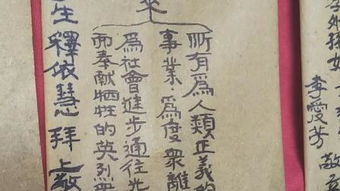 李愛芳 敬
所有為人類正義的
事業‧為度衆離
為社會進步通往光
而奉献牺牲的英烈衆
生 釋依慧 拜上敬